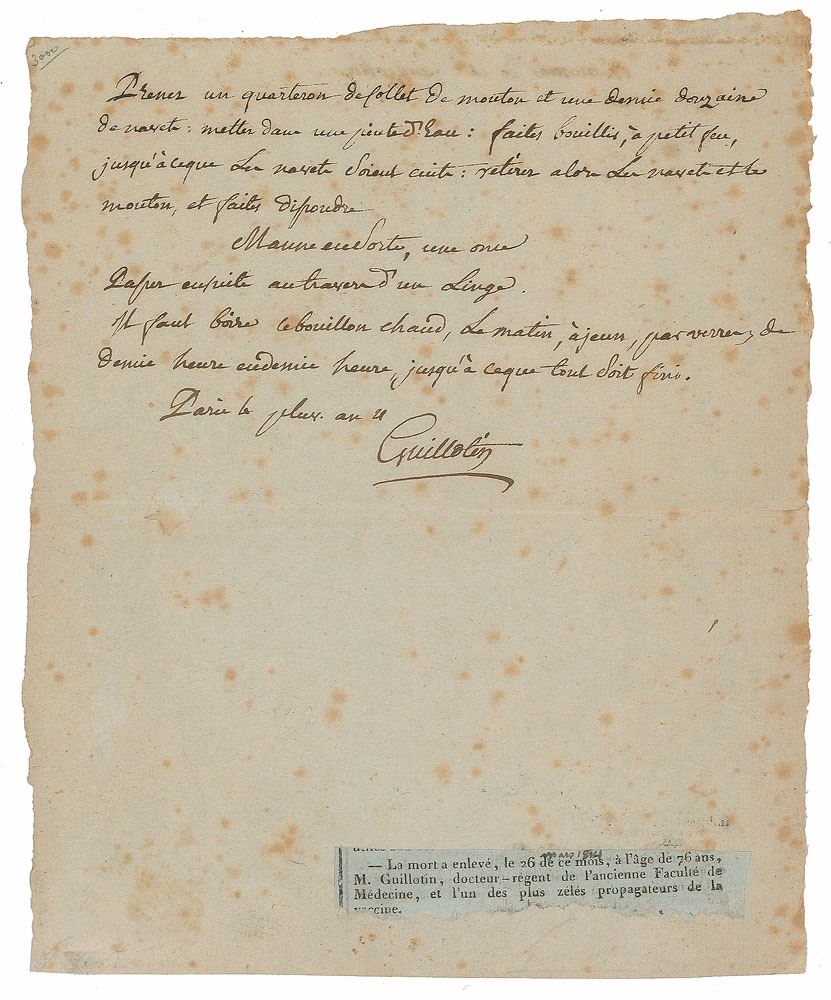 3000
Prenez un quarteron de Collet de mouton et une demie douzaine
de navets : mettez dans une pinte d'Eau : faites bouillir, à petit feu,
jusqu'à ceque Les navets Soient cuits : retirez alors Les navets et le
mouton, et faites dissoudre
Manne en Sorte, une once
Passez ensuite au travers d'un Linge.
Il faut boire ce bouillon chaud, Le matin, à jeun, par verres, de
demie heure en demie heure, jusqu'à ceque tout Soit fini.
Paris le pluv. an 11
Guillotin
mars 1814
— La mort a enlevé, le 26 de ce mois, à l'âge de 76 ans,
M. Guillotin, docteur-régent de l'ancienne Faculté de
Médecine, et l'un des plus zélés propagateurs de la
vaccine.